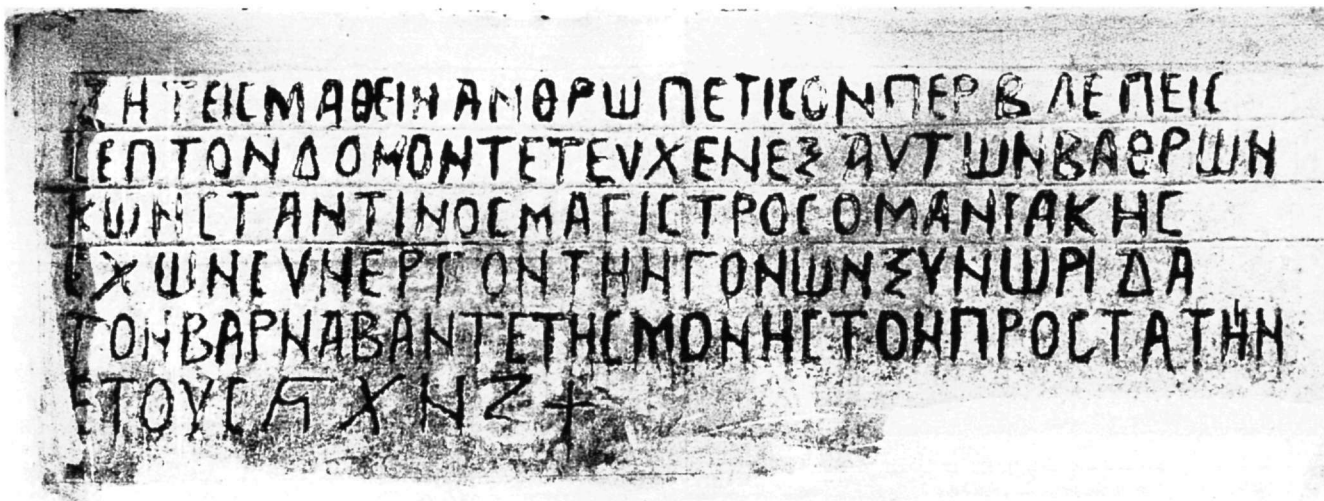 ΖΗΤΕΙCΜΑΘΕΙΝΑΝΘΡΩΠΕΤΙCΟΝΠΕΡΒΛΕΠΕΙC
CΕΠΤΟΝΔΟΜΟΝΤΕΤΕΥΧΕΝΕΞΑΥΤΩΝΒΑΘΡΩΝ
ΚΩΝCΤΑΝΤΙΝΟCΜΑΓΙCΤΡΟCΟΜΑΝΙΑΚΗC
ΕΧΩΝCΥΝΕΡΓΟΝΤΗΝΓΟΝΩΝΞΥΝΩΡΙΔΑ
ΤΟΝΒΑΡΝΑΒΑΝΤΕΤΗCΜΟΝΗCΤΟΝΠΡΟCΤΑΤΗΝ
ΕΤΟΥCϚΧΝΖ+